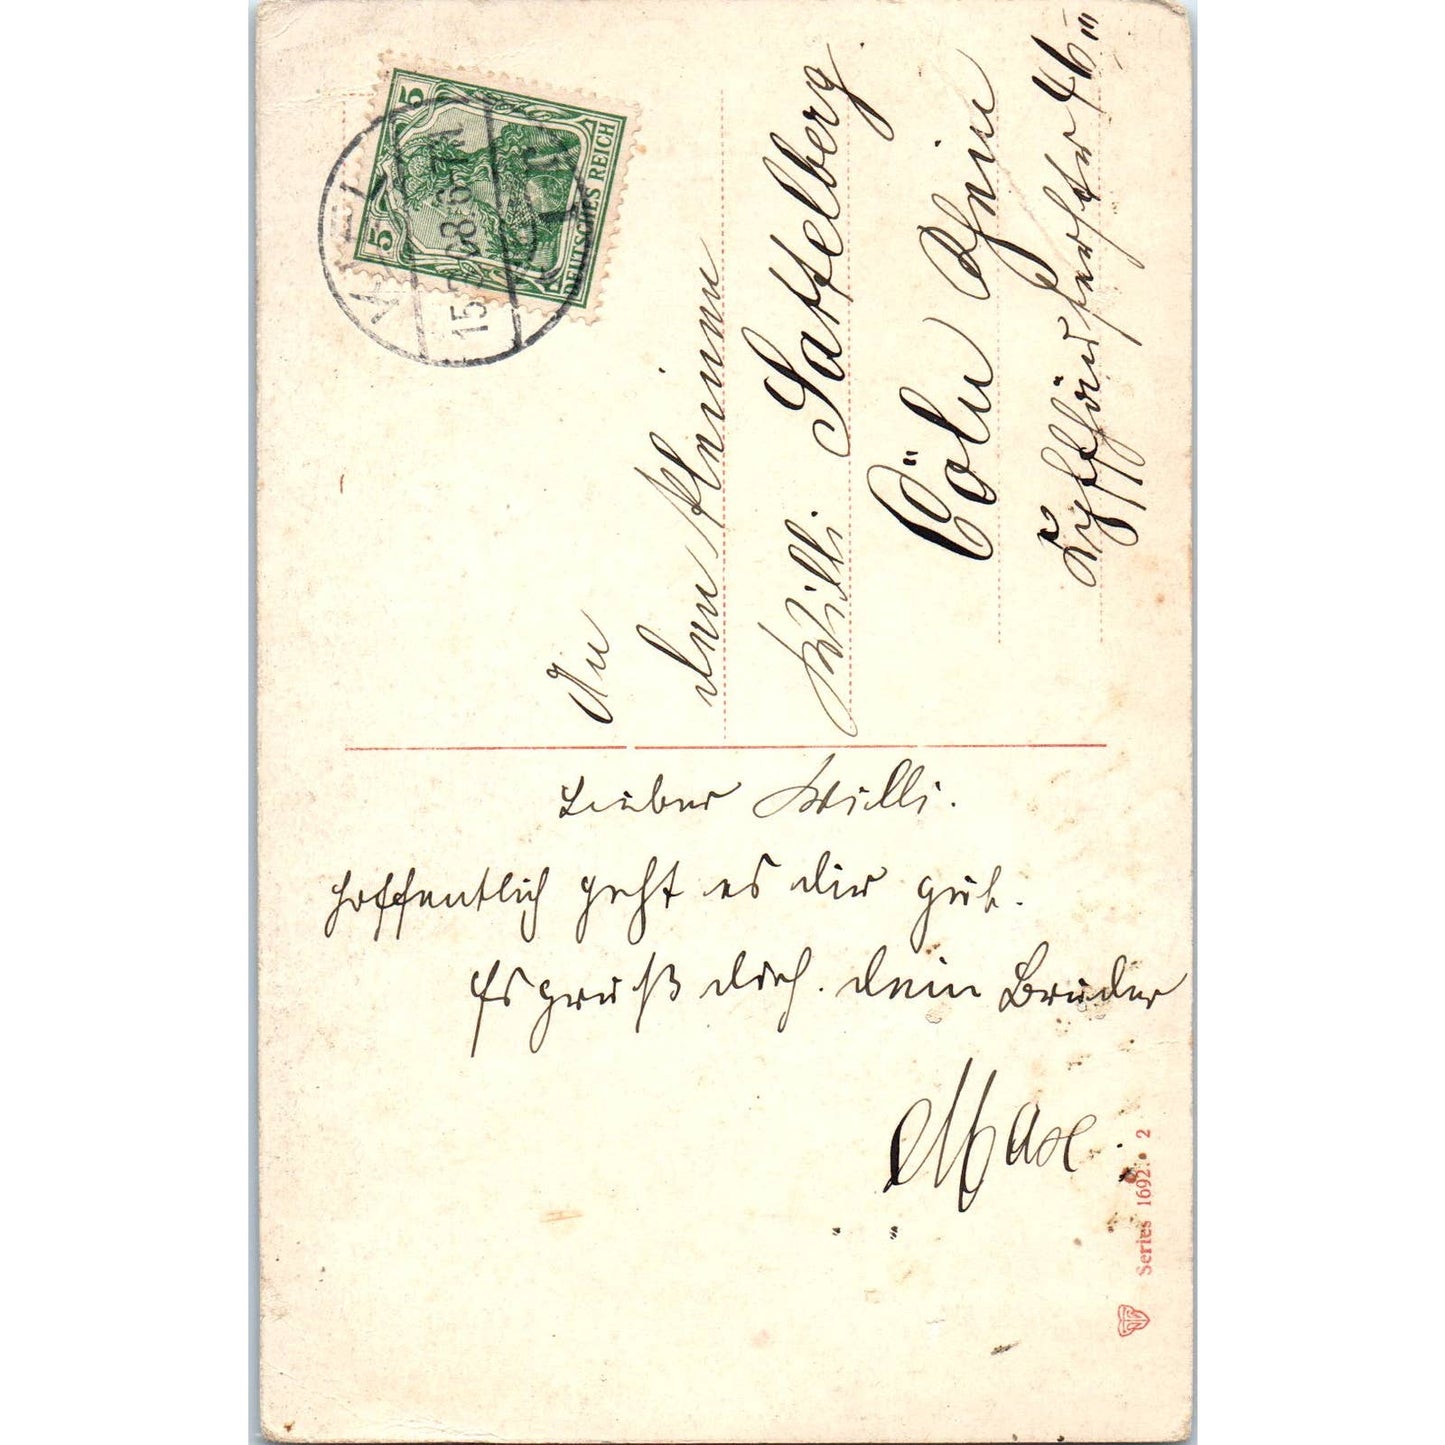 5
5
DEUTSCHES REICH
An
den kleinen
Willi Sattelberg.
Cöln Rhein
Kyffhäuserstr 46 III
Lieber Willi.
hoffentlich geht es dir gut.
Es grüßt dich. dein Bruder
Max.
Series 1692. 2